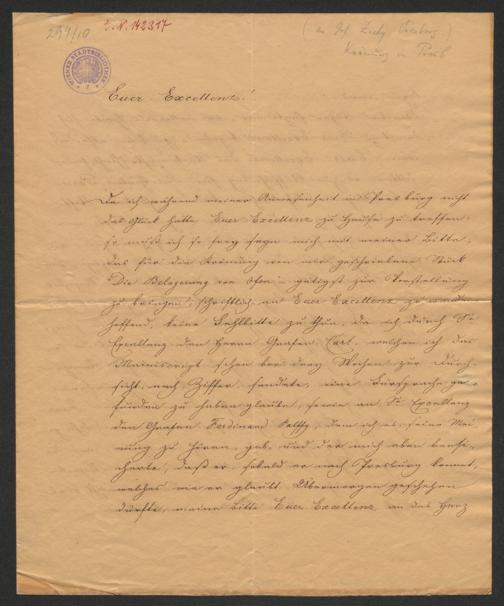 294/10
I.N. 142317
Euer Excellenz!
Da ich während meiner Anwesenheit in Presburg nicht
das Glück hatte Euer Excellenz zu Hause zu treffen,
so ich so frey mich mit meiner Bitte,
das für die Krönung von mir geschriebene Stück
"Die Belagerung von Ofen" gütigst zur Vorstellung
zu bringen, schriftlich an Euer Excellenz zu
hoffend, keine Fehlbitte zu thun, da ich durch Se
Excellenz den Herrn Grafen Carl, welchem ich das
Manuscript schon vor drey Wochen zur Durch-
sicht nach Ziffer sendete, eine Fürsprache ge-
funden zu haben glaube, sowie an Se Excellenz
den Grafen Ferdinand Palffy, dem ich es, seine Mei-
nung zu hören, gab, und der mich aber
daß er, sobald er nach Presburg kommt,
welches wie er glaubt Übermorgen geschehen
dürfte, meine Bitte Euer Excellenz an das Herz